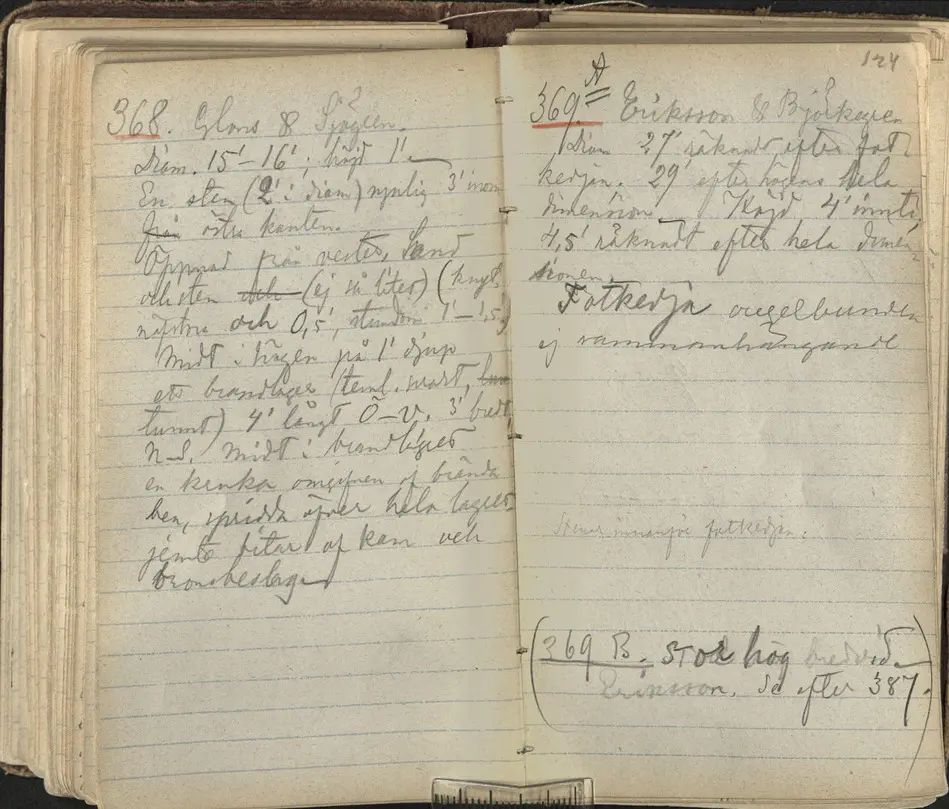 368. Glans & Sjögren.
Diam. 15'–16'; höjd 1'.
En sten (2' i diam) synlig 3' inom
från östra kanten.
Öppnad från vester. Sand
och sten och (ej så liten) (knyt-
näfstora och 0,5', stundom 1'–1,5')
Midt i högen på 1' djup
ett brandlager (teml. svart,
tunnt) 4' långt Ö–V. 3' bredt
N–S. Midt i brandlagret
en kruka omgifven af brända
ben, spridda öfver hela lagret
jemte bitar af kam och
bronsbeslag
124
369. A Eriksson & Björkegren
Diam 27' räknadt efter fot-
kedjan. 29' efter högens hela
dimension. Höjd 4' inuti
4,5' räknadt efter hela dimen-
sionen.
Fotkedja oregelbunden
ej sammanhängande
Stenar innanför fotkedjan.
(369 B. Stor hög bredvid
Eriksson. Se efter 387.)